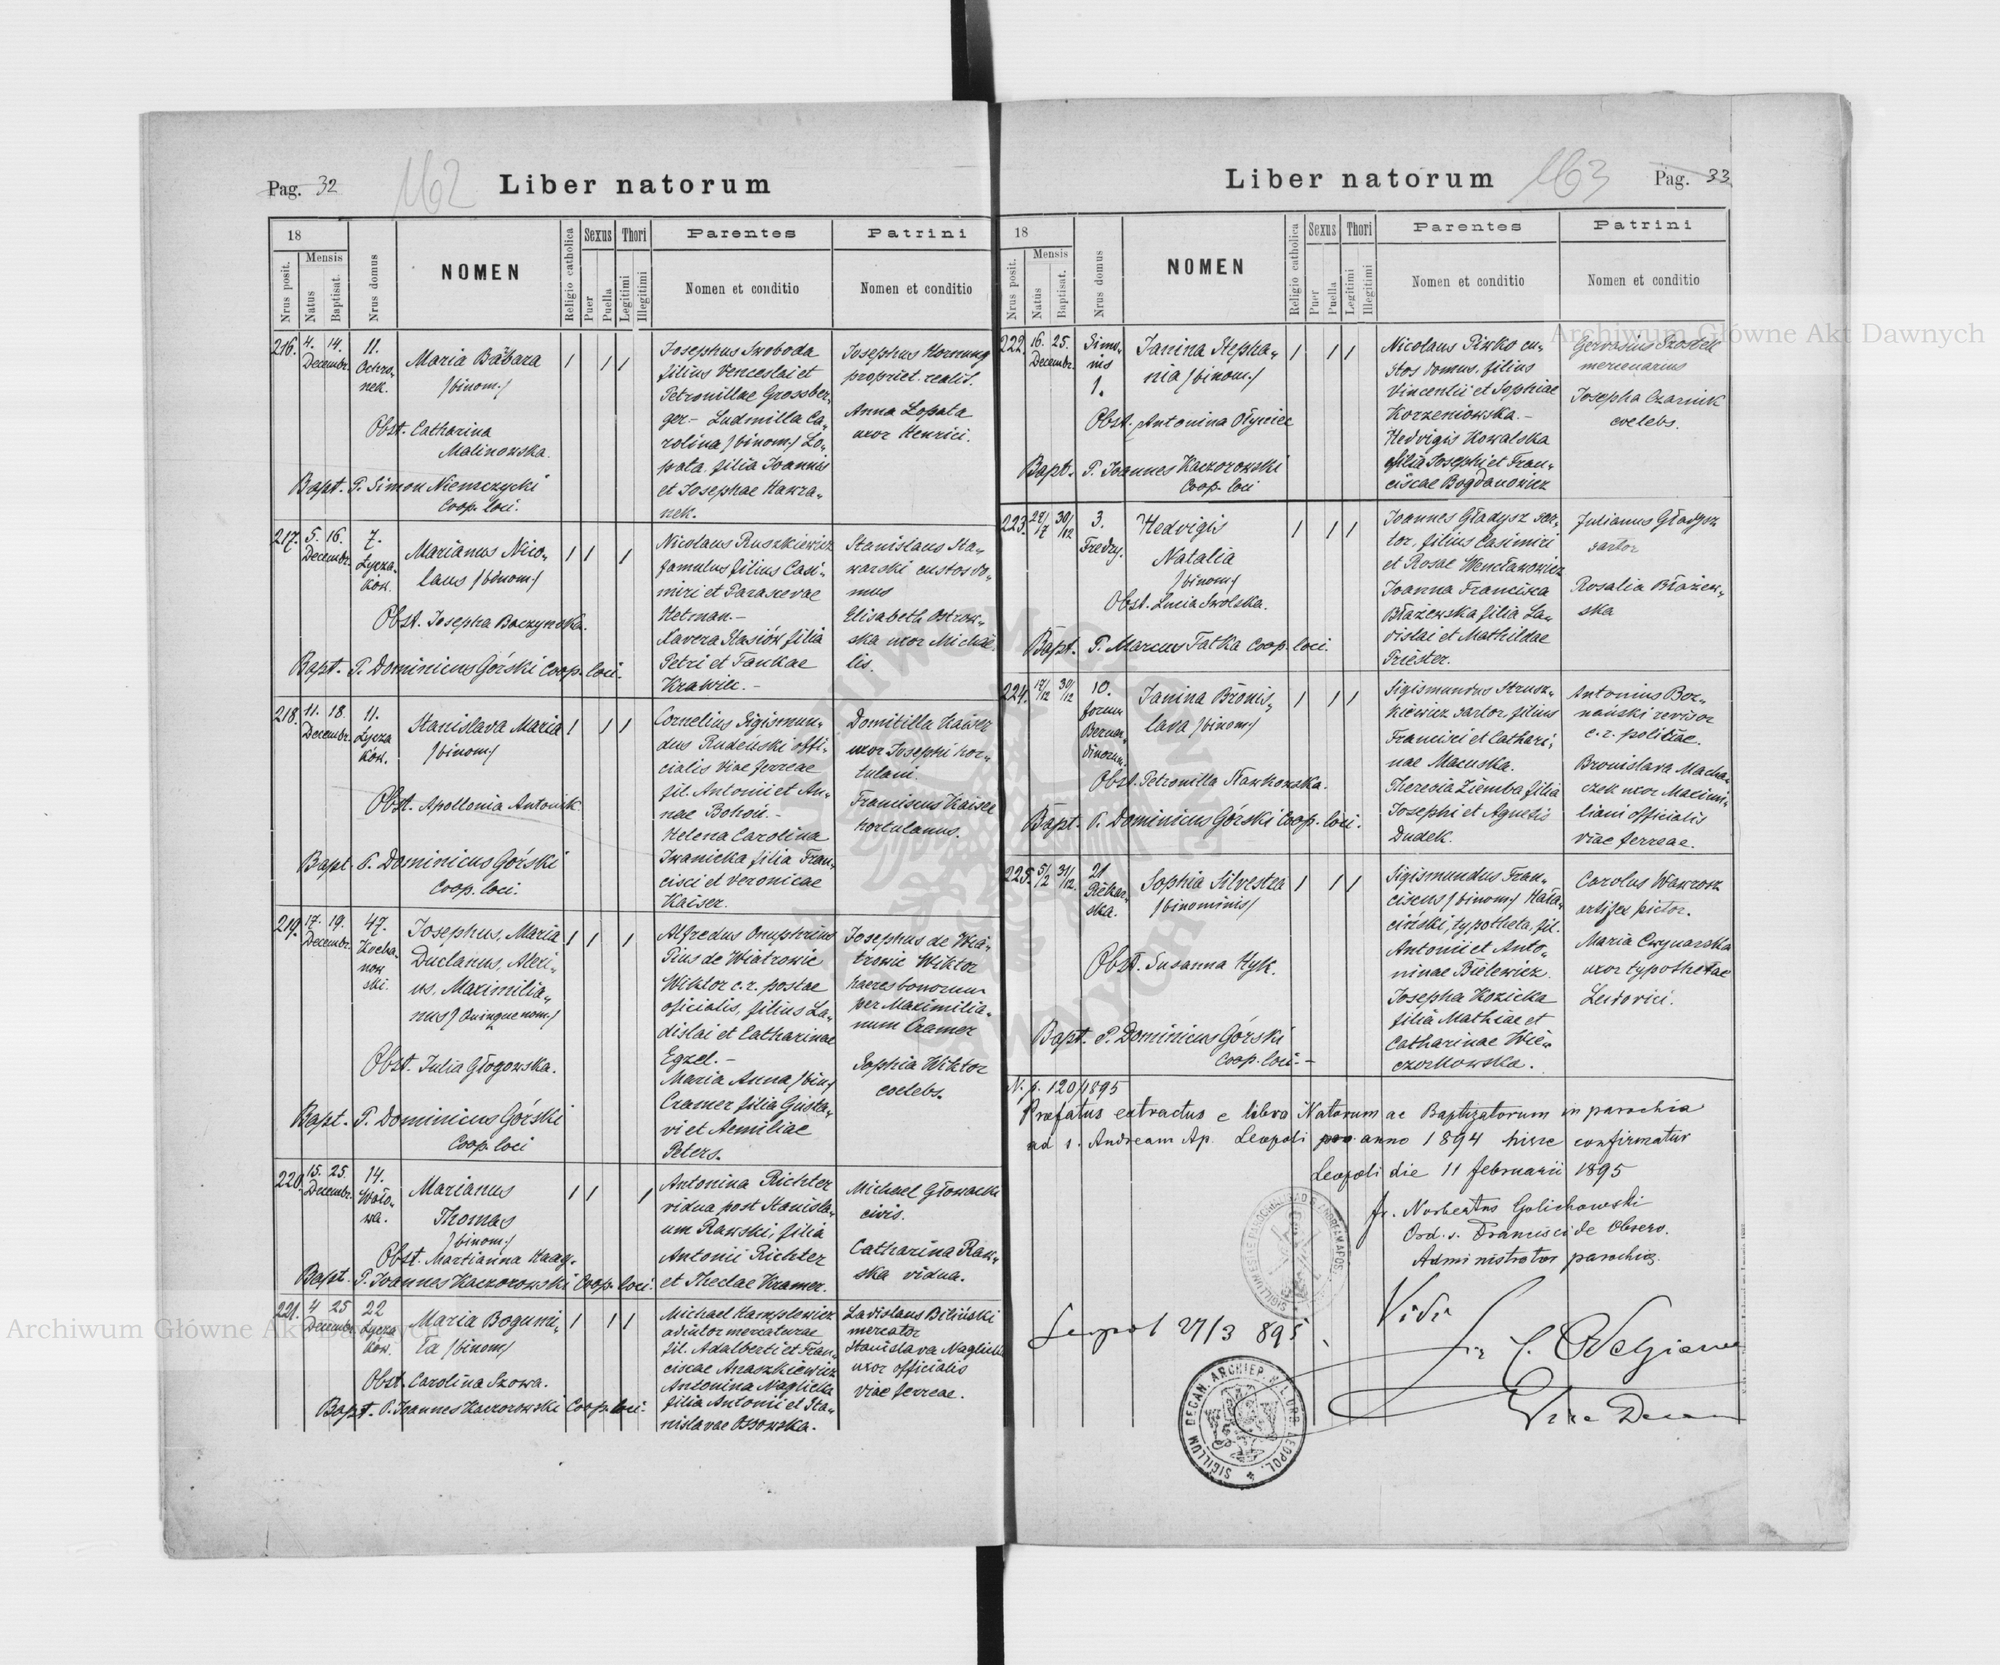 Pag. 32
162
Liber natorum
18
Mensis
Nrus posit.
Natus
Baptisat.
Nrus domus
NOMEN
Religio catholica
Sexus
Puer
Puella
Thori
Legitimi
Illegitimi
Parentes
Nomen et conditio
Patrini
Nomen et conditio
216. 4. 14. Decembr.
11. Ochro-
nek.
Maria Bäbara
/binom./
Obst. Catharina
Malinowska.
Bapt. P. Simon Niemczycki
Coop. loci.
Josephus Swoboda
filius Venceslai et
Petronillae Grossber-
ger - Ludmilla Ca-
rolina /binom./ Lo-
pata filia Joannis
et Josephae Hawra-
nek.
Josephus Hornung
propriet. realit.
Anna Lopata
uxor Henrici.
217. 5. 16. Decembr.
7.
Łycza-
ków.
Marianus Nico-
laus /binom/
Obst. Josepha Baczyńska.
Bapt. P. Dominicus Górski Coop. loci.
Nicolaus Ruszkiewicz
famulus filius Casi-
miri et Parascevae
Hetman. -
Xavera Stasiów filia
Petri et Tankae
Krawiec. -
Stanislaus Sta-
warski custos do-
mus
Elisabeth Ostrow-
ska uxor Michae-
lis.
218. 11. 18. Decembr.
11.
Łycza
ków.
Stanislava Maria
/binom/
Obst. Apollonia Antonik
Bapt. P. Dominicus Górski
Coop. loci.
Cornelius Sigismun-
dus Rudeński offi-
cialis viae ferreae
fil. Antonii et An-
nae Bohoń. -
Helena Carolina
Iwanicka filia Fran-
cisci et Veronicae
Kaiser.
Domitilla Kaiser
uxor Josephi hor-
tulani.
Franciscus Kaiser
hortulanus.
219. 17. 19. Decembr.
47.
Kocha-
now
ski.
Josephus, Maria
Duclanus, Alexi-
us, Maximilia-
nus /Quinque nom/
Obst. Julia Głogowska.
Bapt. P. Dominicus Górski
Coop. loci
Alfredus Onuphrius
Pius de Wiatrowic
Wiktor c.r. postae
oficialis, filius La-
dislai et Catharinae
Egzel. -
Maria Anna /bin/
Cramer filia Gusta-
vi et Aemiliae
Peters.
Josephus de Wia-
trowic Wiktor
haeres bonorum
per Maximilia-
num Cramer
Sophia Wiktor
coelebs.
220. 15. 25. Decembr.
14.
Wało-
wa.
Marianus
Thomas
/binom/
Obst. Martianna Haag.
Bapt. P. Joannes Kaczorowski Coop. loci.
Antonina Richter
vidua post Stanisla-
um Rawski, filia
Antonii Richter
et Theclae Kramer.
Michael Głowacki
civis.
Catharina Raw-
ska vidua.
221. 4 25 Decembr
22
Łycza
ków.
Maria Bogumi-
ła /binom/
Obst. Carolina Szowa.
Bapt. P. Joannes Kaczorowski Coop. loci.
Michael Kamplewicz
adiutor mercaturae
fil. Adalberti et Fran-
ciscae Araszkiewicz
Antonina Naglicka
filia Antonii et Sta-
nislavae Ossowska.
Ladislaus Biliński
mercator
Stanislava Naglicka
uxor officialis
viae ferreae.
Liber natorum
163
Pag. 33
18
Mensis
Nrus posit.
Natus
Baptisat.
Nrus domus
NOMEN
Religio catholica
Sexus
Puer
Puella
Thori
Legitimi
Illegitimi
Parentes
Nomen et conditio
Patrini
Nomen et conditio
222. 16. 25. Decembr.
Simo-
nis
1.
Janina Stepha-
nia /binom./
Obst. Antonina Ołyniec
Bapt. P. Joannes Kaczorowski
Coop. loci
Nicolaus Piwko cu-
stos domus, filius
Vincentii et Sophiae
Korzeniowska. -
Hedvigis Kowalska
filia Josephi et Fran-
ciscae Bogdanowicz
Gervasius Szostak
mercenarius
Josepha Czarnik
coelebs.
223. 30/12
3.
Fredry.
Hedvigis
Natalia
/binom/
Obst. Lucia Smolska.
Bapt. P. Marcus Fatka Coop. loci.
Joannes Gładysz sar-
tor, filius Casimiri
et Rosae Wencławowicz
Joanna Francisca
Błażewska filia La-
dislai et Mathildae
Priester.
Julianus Gładysz
sartor
Rosalia Błażew-
ska
224. 17/12 30/12
10.
forum
Bernar-
dinorum.
Janina Bronis-
lava /binom/
Obst. Petronilla Sławkowska.
Bapt. P. Dominicus Górski Coop. loci.
Sigismundus Strusz-
kiewicz sartor. filius
Francisci et Cathari-
nae Macuska.
Theresia Ziemba filia
Josephi et Agnetis
Dudek.
Antonius Boz-
nański revisor
c. r. politiae.
Bronislava Macha-
czek uxor Maximi-
liani officialis
viae ferreae.
225. 5/2 31/12.
21
Piekar-
ska.
Sophia Silvestra
/binominis/
Obst. Susanna Hyk.
Bapt. P. Dominicus Górski
Coop. loci. -
Sigismundus Fran-
ciscus /binom/ Hała-
ciński, typotheta, fil.
Antonii et Anto-
ninae Bielewicz.
Josepha Kozicka
filia Mathiae et
Catharinae Wie-
czorkowska.
Carolus Wawrosz
artifex pictor.
Maria Cwynarska
uxor typothetae
Ludovici.
N. p. 120/1895
Praefatus extractus e libro Natorum ac Baptizatorum in parochia
ad s. Andream Ap. Leopoli pro anno 1894 hisce confirmatur
Leopoli die 11 februarii 1895
fr. Norbertus Golichowski
Ord. s. Francisci de Observ.
Administrator parochiae.
Vidi
Leopol 27/3 895
Vice Decan
SIGILLUM DECAN. ARCHIEP. R. L. URB. LEOPOL.
Archiwum Główne Akt Dawnych
Archiwum Główne Akt Dawnych